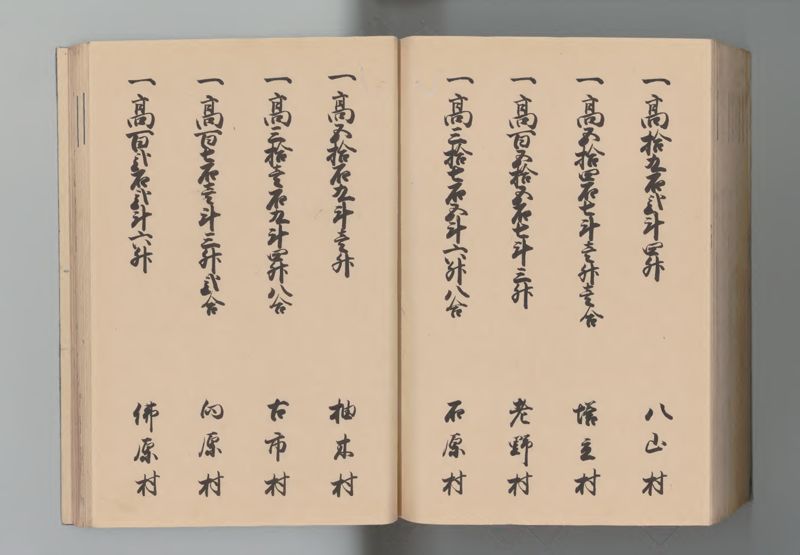 一高拾九石弐斗四升 八山村
一高五拾四石七斗壱升壱合 塔立村
一高百五拾五石七斗三升 老野村
一高三拾七石五斗六升八合 石原村
一高五拾石九斗壱升 柚木村
一高三拾壱石九斗四升八合 古市村
一高百七石壱斗三升弐合 向原村
一高百弐石弐斗六升 佛原村